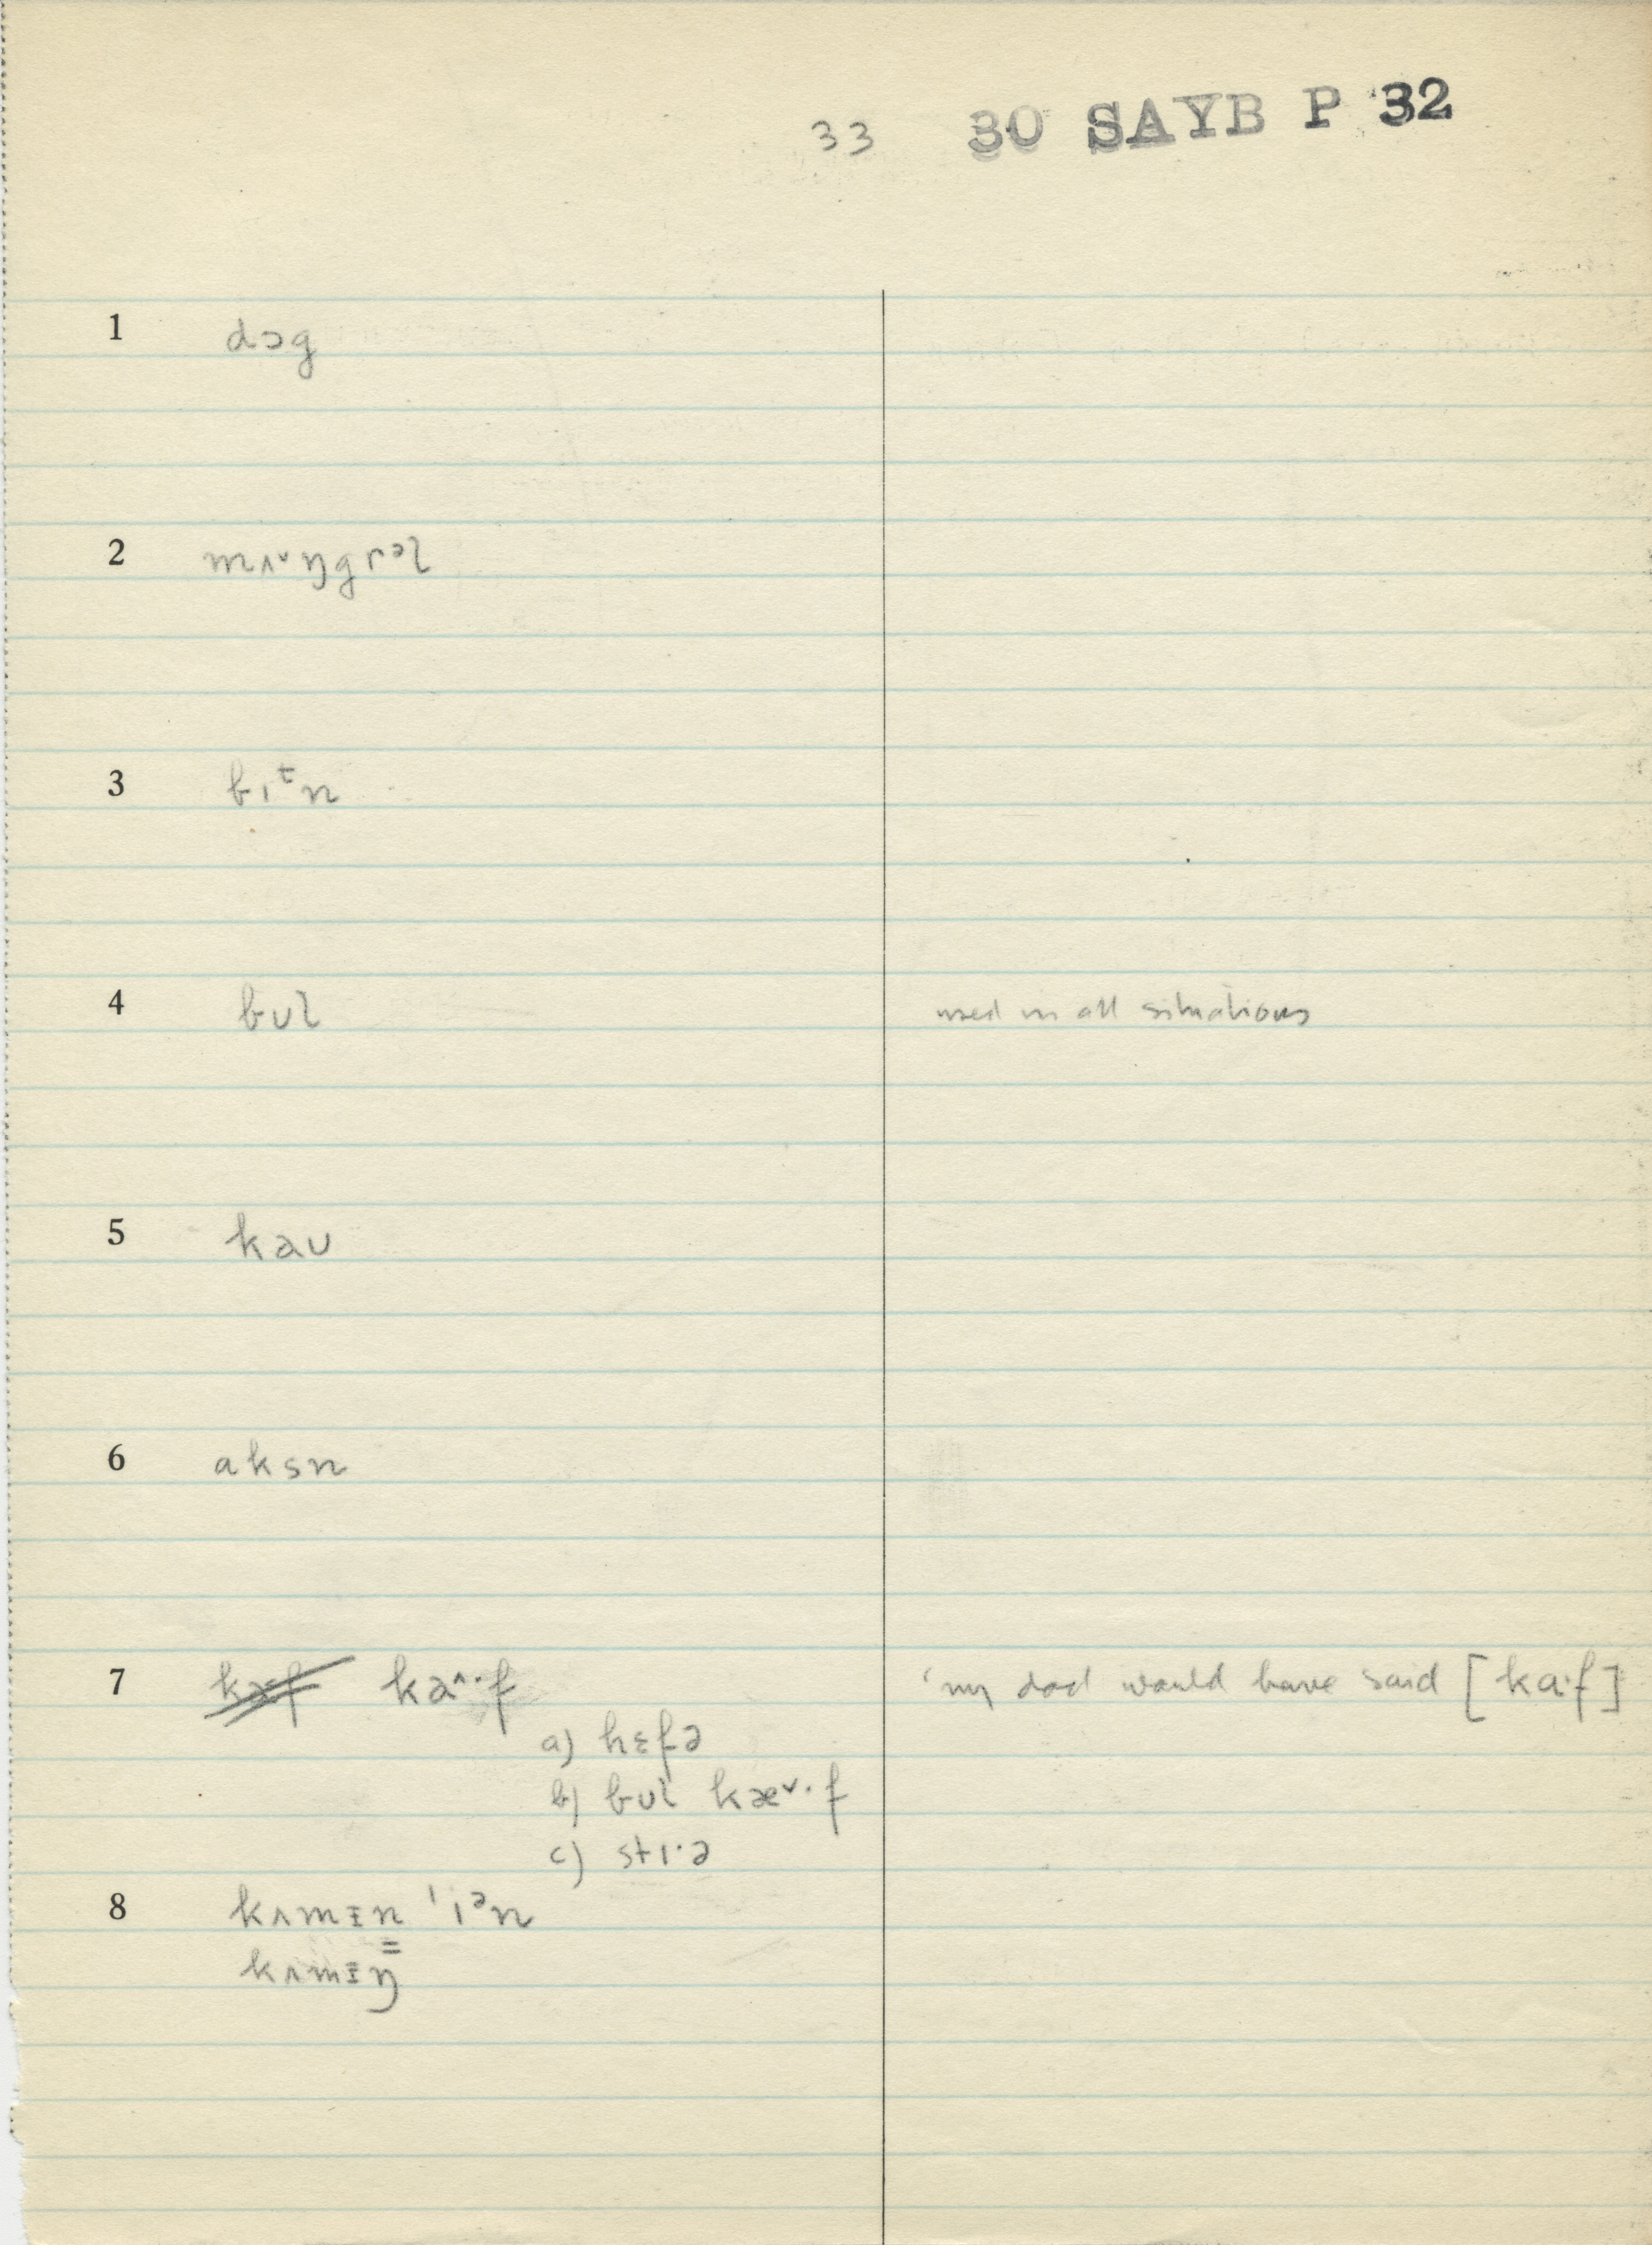 33 30 SAYB P 32
1 dɔg
2 mʌ˅ŋgrᵊl
3 bɪᵗn
4 bʊl used in all situations
5 kaʊ
6 aksn
7 kæf ka^·f 'my dad would have said [ka·f]
a) hɛfə
b) bʊl kæ˅·f
c) stɪ·ə
8 kʌmɪn 'ɪᵊn
kʌmɪŋ